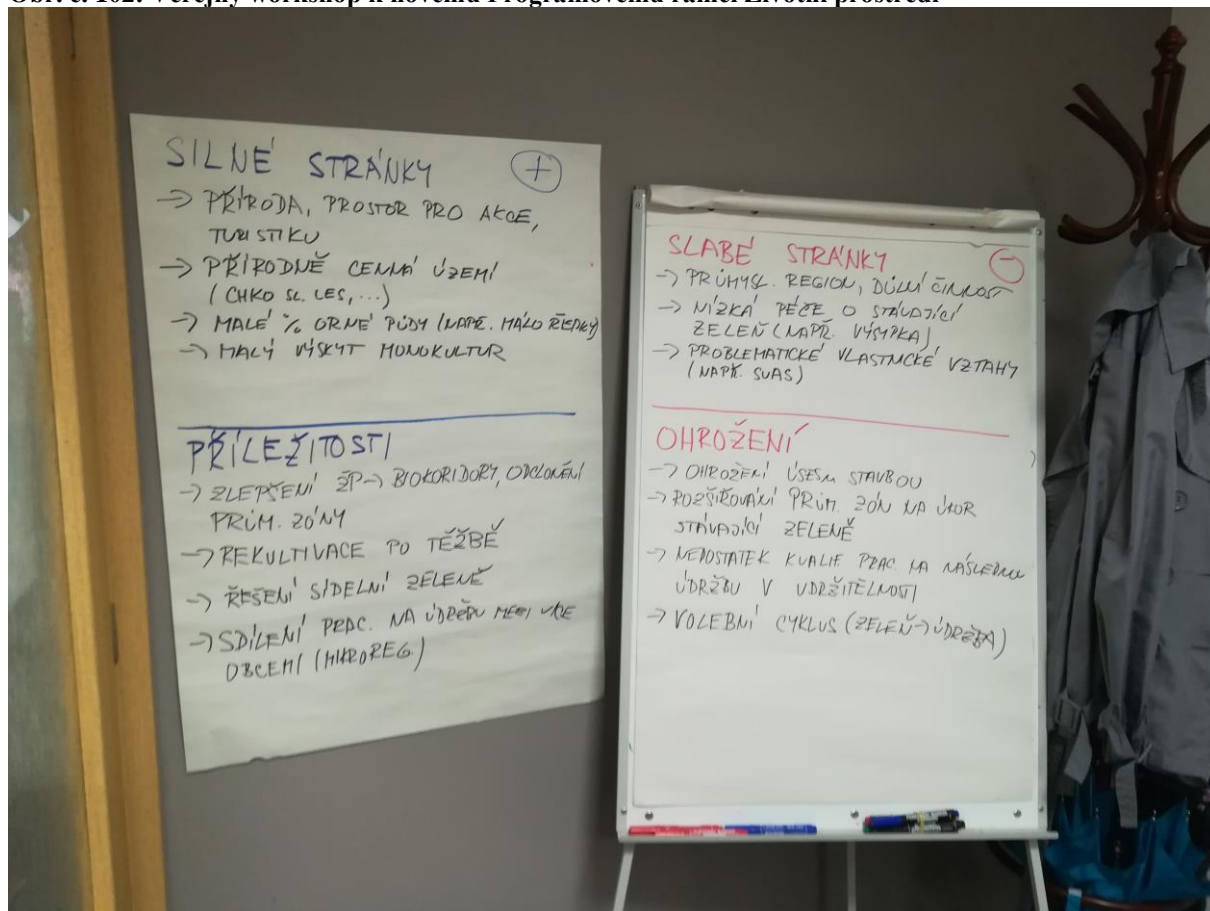 Obr. č. 102: Veřejný workshop k novému Programovému rámci Životní prostředí
SILNÉ STRÁNKY +
-> PŘÍRODA, PROSTOR PRO AKCE,
TURISTIKU
-> PŘÍRODNĚ CENNÁ ÚZEMÍ
(CHKO SL. LES, ...)
-> MALÉ % ORNÉ PŮDY (NAPŘ. MÁLO ŘEPKY)
-> MALÝ VÝSKYT MONOKULTUR
PŘÍLEŽITOSTI
-> ZLEPŠENÍ ŽP -> BIOKORIDORY, ODCLONĚNÍ
PRŮM. ZÓNY
-> REKULTIVACE PO TĚŽBĚ
-> ŘEŠENÍ SÍDELNÍ ZELENĚ
-> SDÍLENÍ PRAC. NA ÚDRŽBU MEZI VÍCE
OBCEMI (MIKROREG.)
SLABÉ STRÁNKY -
-> PRŮMYSL. REGION, DŮLNÍ ČINNOST
-> NÍZKÁ PÉČE O STÁVAJÍCÍ
ZELEŇ (NAPŘ. VÝSYPKA)
-> PROBLEMATICKÉ VLASTNICKÉ VZTAHY
(NAPŘ. SUAS)
OHROŽENÍ
-> OHROŽENÍ ÚSESM STAVBOU
-> ROZŠIŘOVÁNÍ PRŮM. ZÓN NA ÚKOR
STÁVAJÍCÍ ZELENĚ
-> NEDOSTATEK KVALIF. PRAC. NA NÁSLEDNOU
ÚDRŽBU V UDRŽITELNOSTI
-> VOLEBNÍ CYKLUS (ZELEŇ -> ÚDRŽBA)